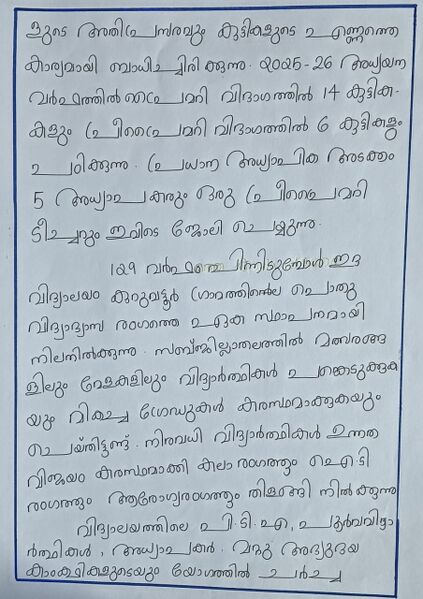 ളുടെ അതിപ്രസരവും കുട്ടികളുടെ എണ്ണത്തെ
കാര്യമായി ബാധിച്ചിരിക്കുന്നു. 2025-26 അധ്യയന
വർഷത്തിൽ പ്രൈമറി വിഭാഗത്തിൽ 14 കുട്ടിക-
കളും പ്രീപ്രൈമറി വിഭാഗത്തിൽ 6 കുട്ടികളും
പഠിക്കുന്നു. പ്രധാന അധ്യാപിക അടക്കം
5 അധ്യാപകരും ഒരു പ്രീപ്രൈമറി
ടീച്ചറും ഇവിടെ ജോലി ചെയ്യുന്നു.
129 വർഷത്തെ പിന്നിട്ടുമ്പോൾ ഈ
വിദ്യാലയം കുറുവട്ടൂർ ഗ്രാമത്തിന്റെ പൊതു
വിദ്യാഭ്യാസ രംഗത്തെ ഏക സ്ഥാപനമായി
നിലനിൽക്കുന്നു. സബ്ജില്ലാതലത്തിൽ മത്സരങ്ങ
ളിലും മേളകളിലും വിദ്യാർത്ഥികൾ പങ്കെടുക്കുക
യും മികച്ച ഗ്രേഡുകൾ കരസ്ഥമാക്കുകയും
ചെയ്തിട്ടുണ്ട്. നിരവധി വിദ്യാർത്ഥികൾ ഉന്നത
വിജയം കരസ്ഥമാക്കി കലാ രംഗത്തും ഐ.ടി
രംഗത്തും ആരോഗ്യരംഗത്തും തിളങ്ങി നിൽക്കുന്നു
വിദ്യാലയത്തിലെ പി.ടി.എ, പൂർവവിദ്യാ
ർത്ഥികൾ, അധ്യാപകർ. മറ്റു അഭ്യുദയ
കാംക്ഷികളുടെയും യോഗത്തിൽ ചർച്ച